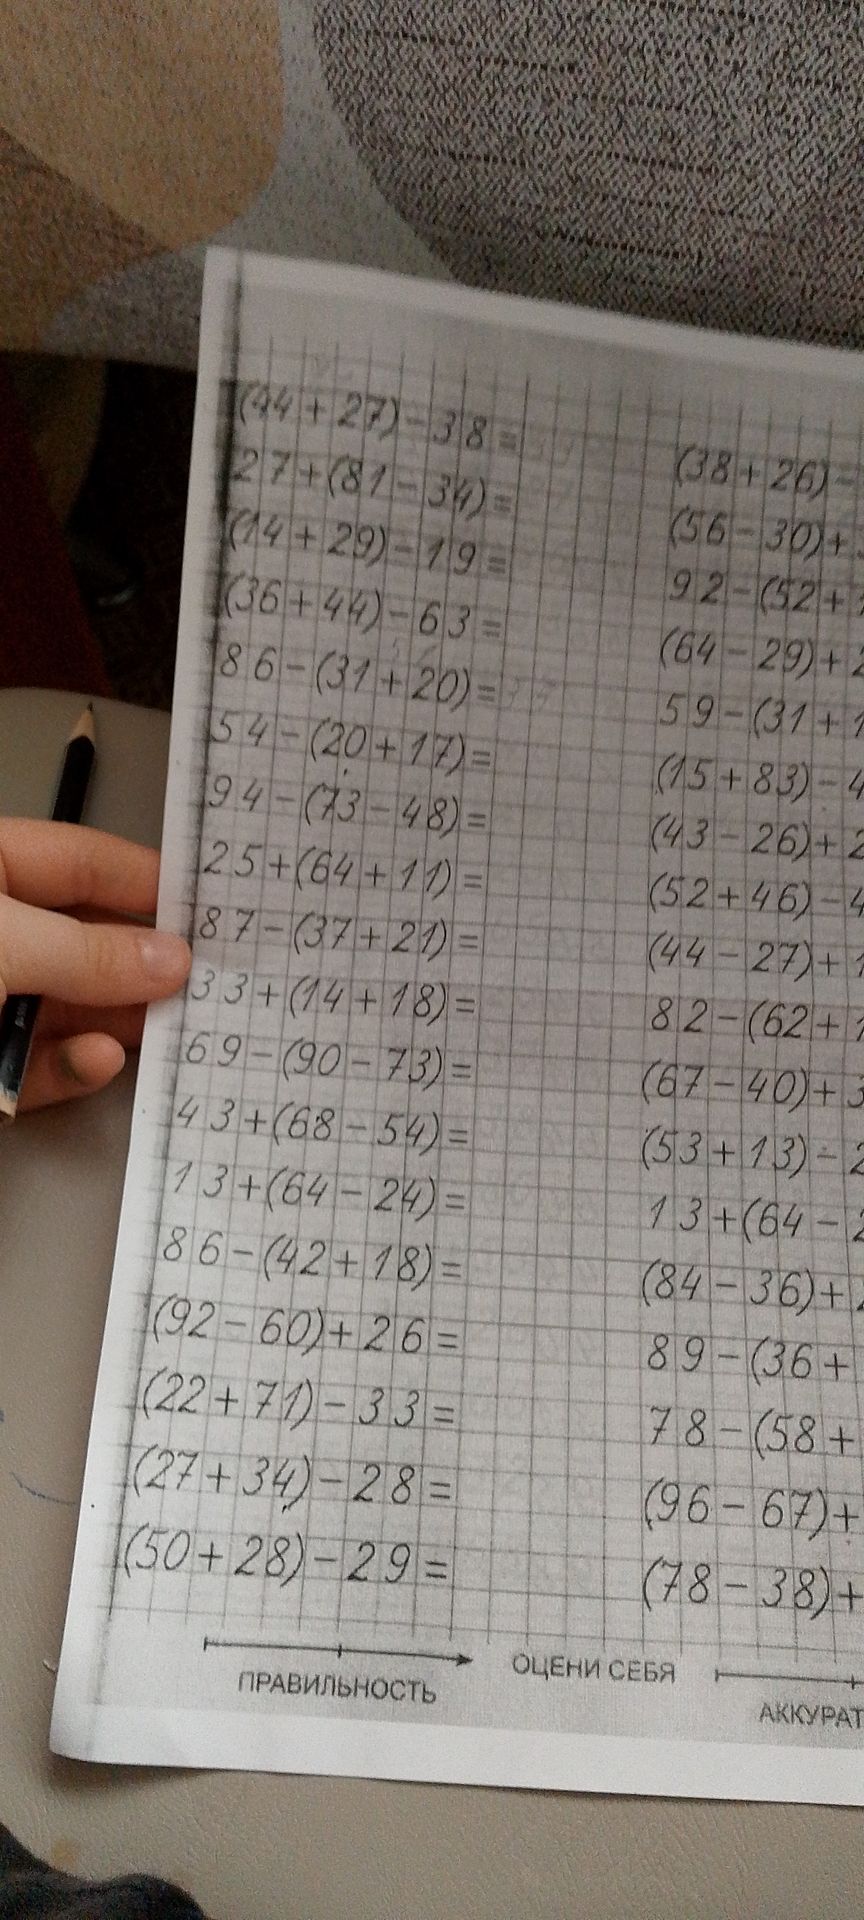 (44+27)-38=
27+(81-34)=
(14+29)-19=
(36+44)-63=
86-(31+20)=
54-(20+17)=
94-(73-48)=
25+(64+11)=
87-(37+21)=
33+(14+18)=
69-(90-73)=
43+(68-54)=
13+(64-24)=
86-(42+18)=
(92-60)+26=
(22+71)-33=
(27+34)-28=
(50+28)-29=
(38+26)-
(56-30)+
92-(52+
(64-29)+2
59-(31+1
(15+83)-4
(43-26)+2
(52+46)-4
(44-27)+1
82-(62+1
(67-40)+3
(53+13)-2
13+(64-2
(84-36)+
89-(36+
78-(58+
(96-67)+
(78-38)+
ПРАВИЛЬНОСТЬ
ОЦЕНИ СЕБЯ
АККУРАТ